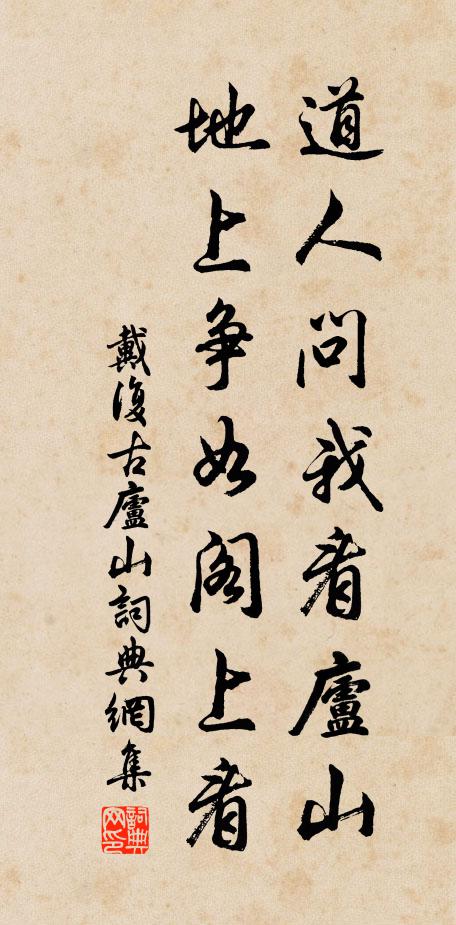 道人問我看廬山
地上爭如閣上看
戴復古廬山詞典網集
詞典網印